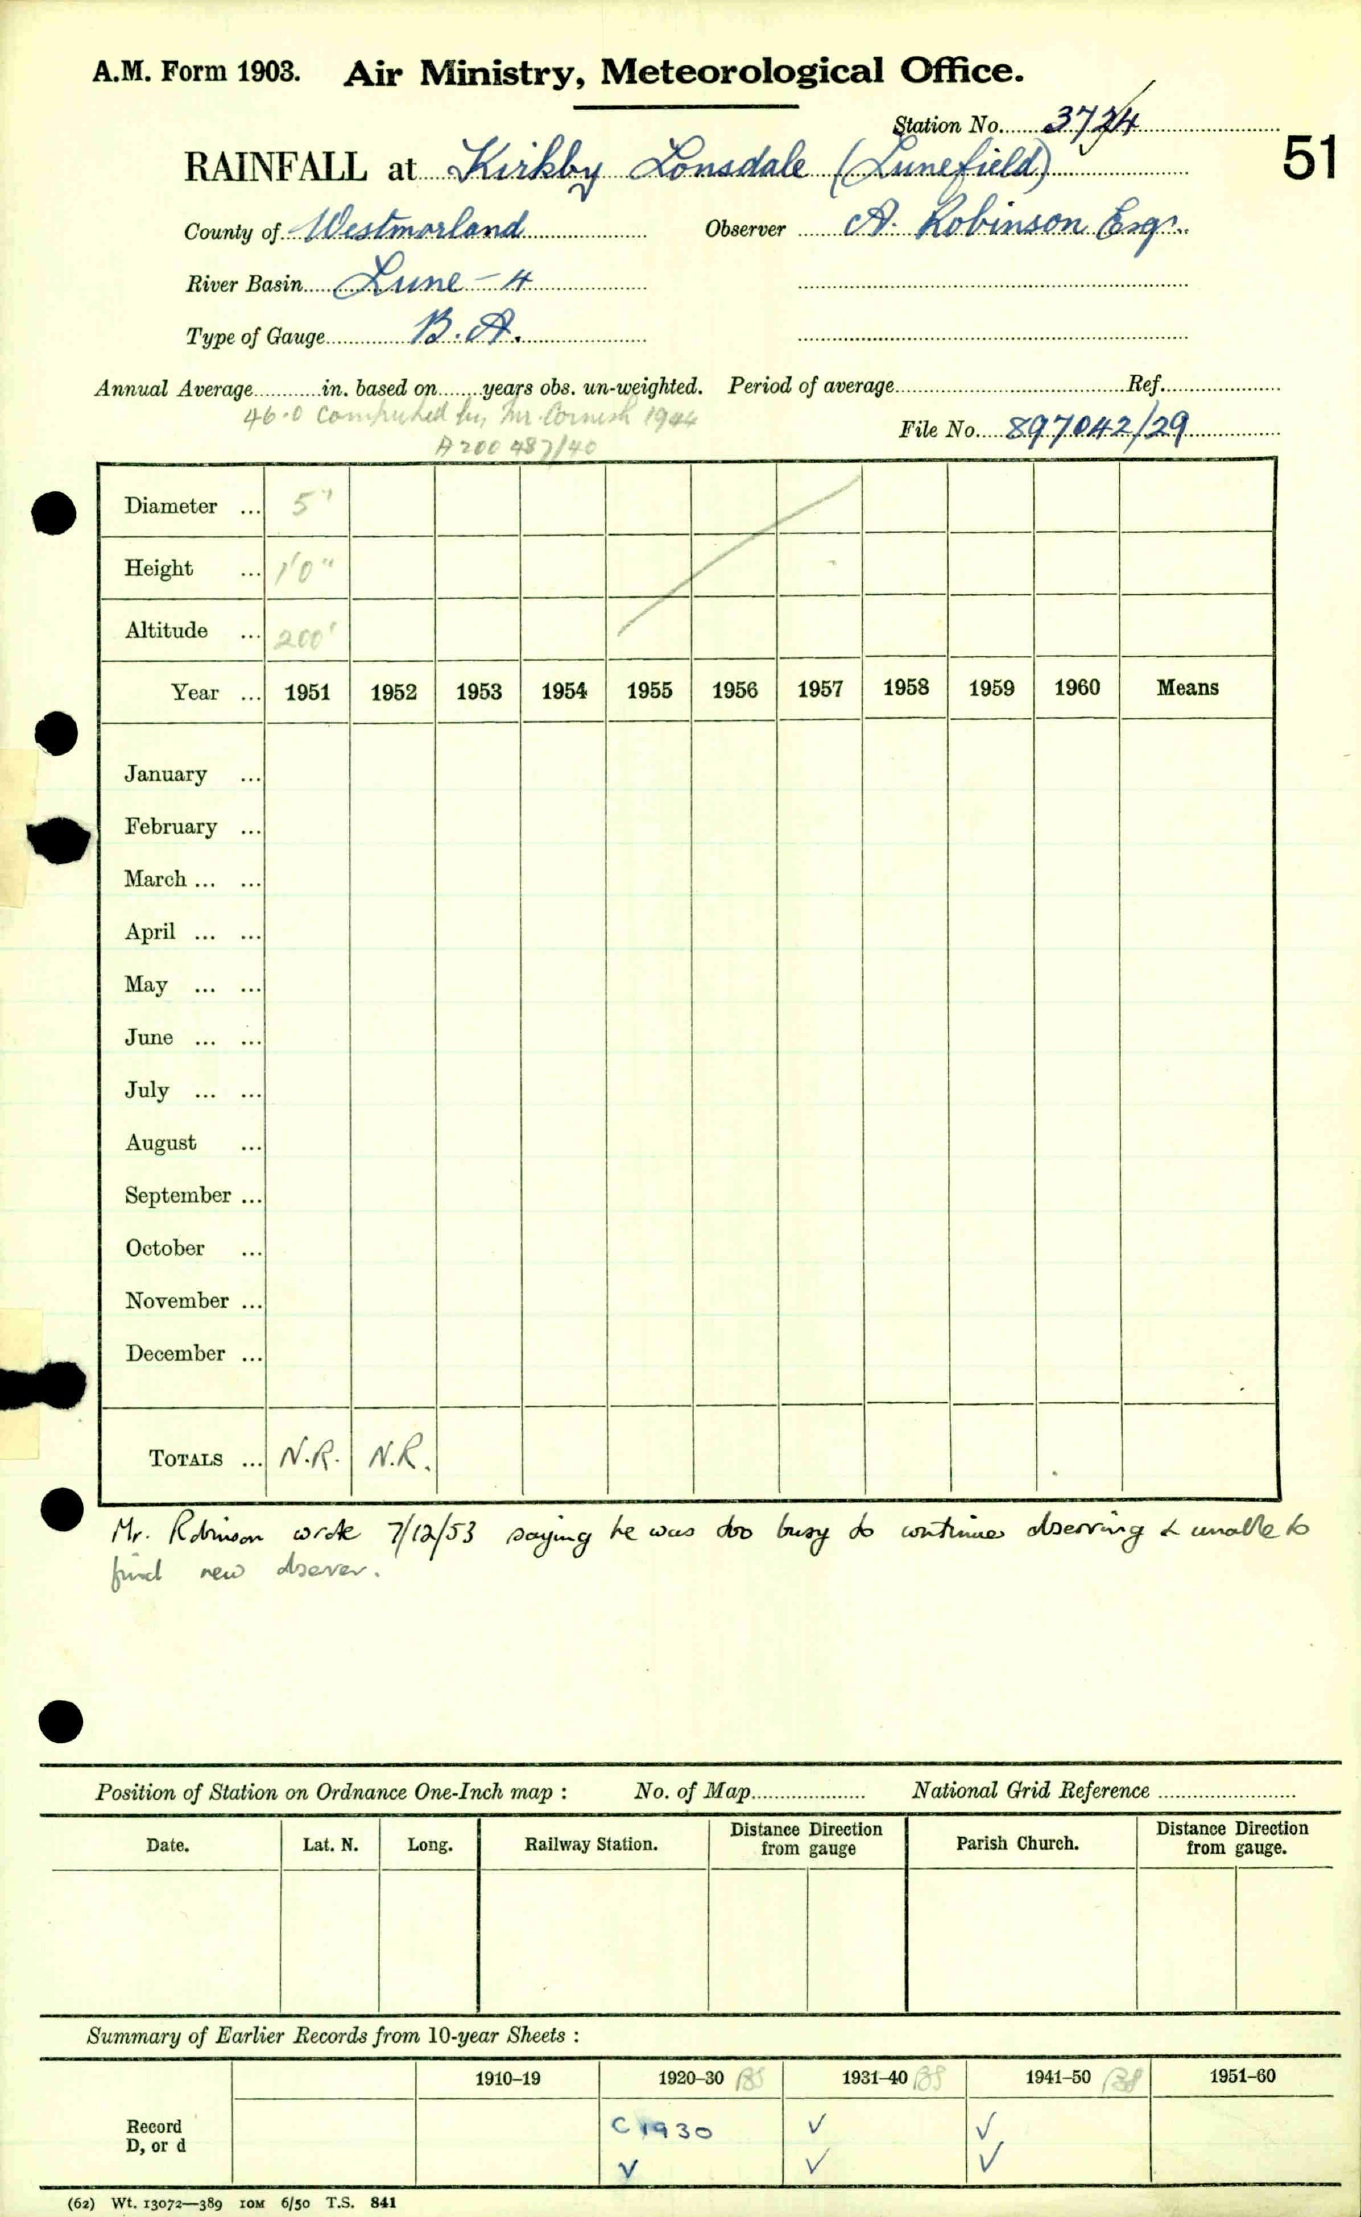 A.M. Form 1903. Air Ministry, Meteorological Office.
Station No. 3724
51
RAINFALL at Kirkby Lonsdale (Lunefield)
County of Westmorland Observer A. Robinson Esq.
River Basin Lune - 4
Type of Gauge B.A.
Annual Average in. based on years obs. un-weighted. Period of average Ref.
46.0 computed by Mr. Cornish 1944
File No. 897042/29
A 200 487/40
Diameter ... 5"
Height ... 1'0"
Altitude ... 200'
Year ... 1951 1952 1953 1954 1955 1956 1957 1958 1959 1960 Means
January ...
February ...
March ... ...
April ... ...
May ... ...
June ... ...
July ... ...
August ...
September ...
October ...
November ...
December ...
TOTALS ... N.R. N.R.
Mr. Robinson wrote 7/12/53 saying he was too busy to continue observing & unable to
find new observer.
Position of Station on Ordnance One-Inch map : No. of Map National Grid Reference
Date. Lat. N. Long. Railway Station. Distance Direction from gauge Parish Church. Distance Direction from gauge.
Summary of Earlier Records from 10-year Sheets :
1910–19 1920–30 BS 1931–40 BS 1941–50 BS 1951–60
Record C 1930 ✓ ✓
D, or d ✓ ✓ ✓
(62) Wt. 13072—389 10M 6/50 T.S. 841